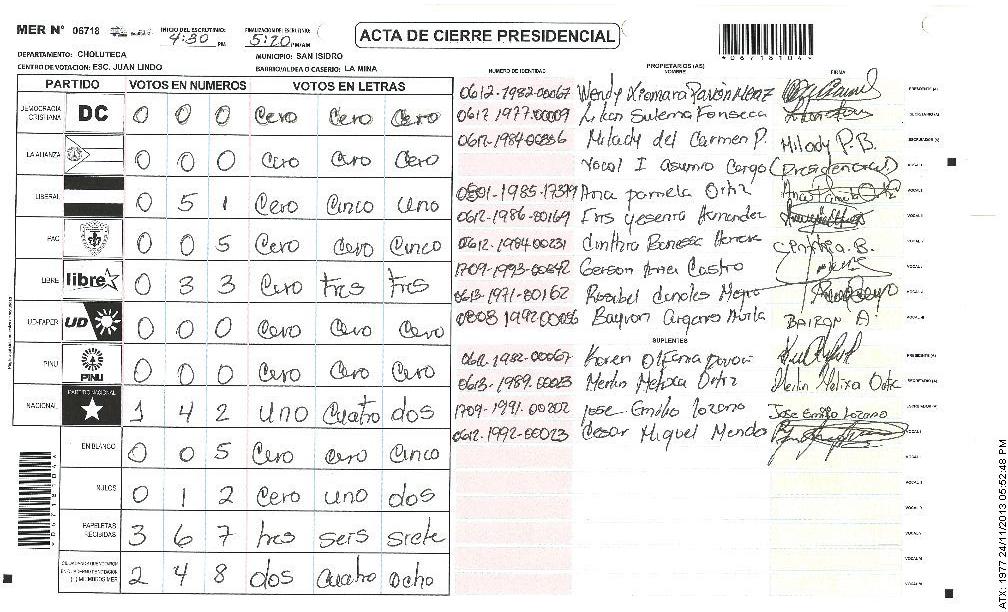 MER N° 06718 INICIO DEL ESCRUTINIO: 4:30 PM FINALIZACION ESCRUTINIO: 5:20 PM/AM
ACTA DE CIERRE PRESIDENCIAL
*06718104*
DEPARTAMENTO: CHOLUTECA MUNICIPIO: SAN ISIDRO
CENTRO DE VOTACION: ESC. JUAN LINDO BARRIO/ALDEA O CASERIO: LA MINA
PARTIDO VOTOS EN NUMEROS VOTOS EN LETRAS
DEMOCRACIA CRISTIANA DC 0 0 0 Cero Cero Cero
LA ALIANZA 0 0 0 Cero Cero Cero
LIBERAL 0 5 1 Cero Cinco Uno
PAC 0 0 5 Cero Cero Cinco
LIBRE libre 0 3 3 Cero tres tres
UD-FAPER UD 0 0 0 Cero Cero Cero
PINU PINU 0 0 0 Cero Cero Cero
NACIONAL PARTIDO NACIONAL 1 4 2 Uno Cuatro dos
EN BLANCO 0 0 5 Cero Cero Cinco
NULOS 0 1 2 Cero uno dos
PAPELETAS RECIBIDAS 3 6 7 tres seis siete
2 4 8 dos Cuatro ocho
PROPIETARIOS (AS)
NUMERO DE IDENTIDAD NOMBRE FIRMA
0612-1982-00067 Wendy Xiomara PRESIDENTE (A)
0612 1977-00009 Sulema Fonseca SECRETARIO (A)
0612-1984-00356 Milady del Carmen P. Milady P.B. ESCRUTADOR (A)
Vocal I Asumio Cargo (Presidencial) VOCAL I
0801-1985-17399 Ana pamela Ortiz
0612-1986-00169 Yesenia Hernandez
0612-1984-00231 Cinthia B.
1709-1993-00842 Gerson Castro
0613-1971-00162 Rosibel
0808 1992-00056 Bayron BAIRON A
SUPLENTES
0612-1982-00067 Karen PRESIDENTE (A)
0613-1989-00023 Merlin Melixa Ortiz Merlin Melixa Ortiz SECRETARIO (A)
1709-1991-00202 Jose Emilio Lozano Jose Emilio Lozano ESCRUTADOR (A)
0612-1992-00023 Cesar Miguel VOCAL I
*06718104*
ATX: 1977 24/11/2013 05:52:48 PM